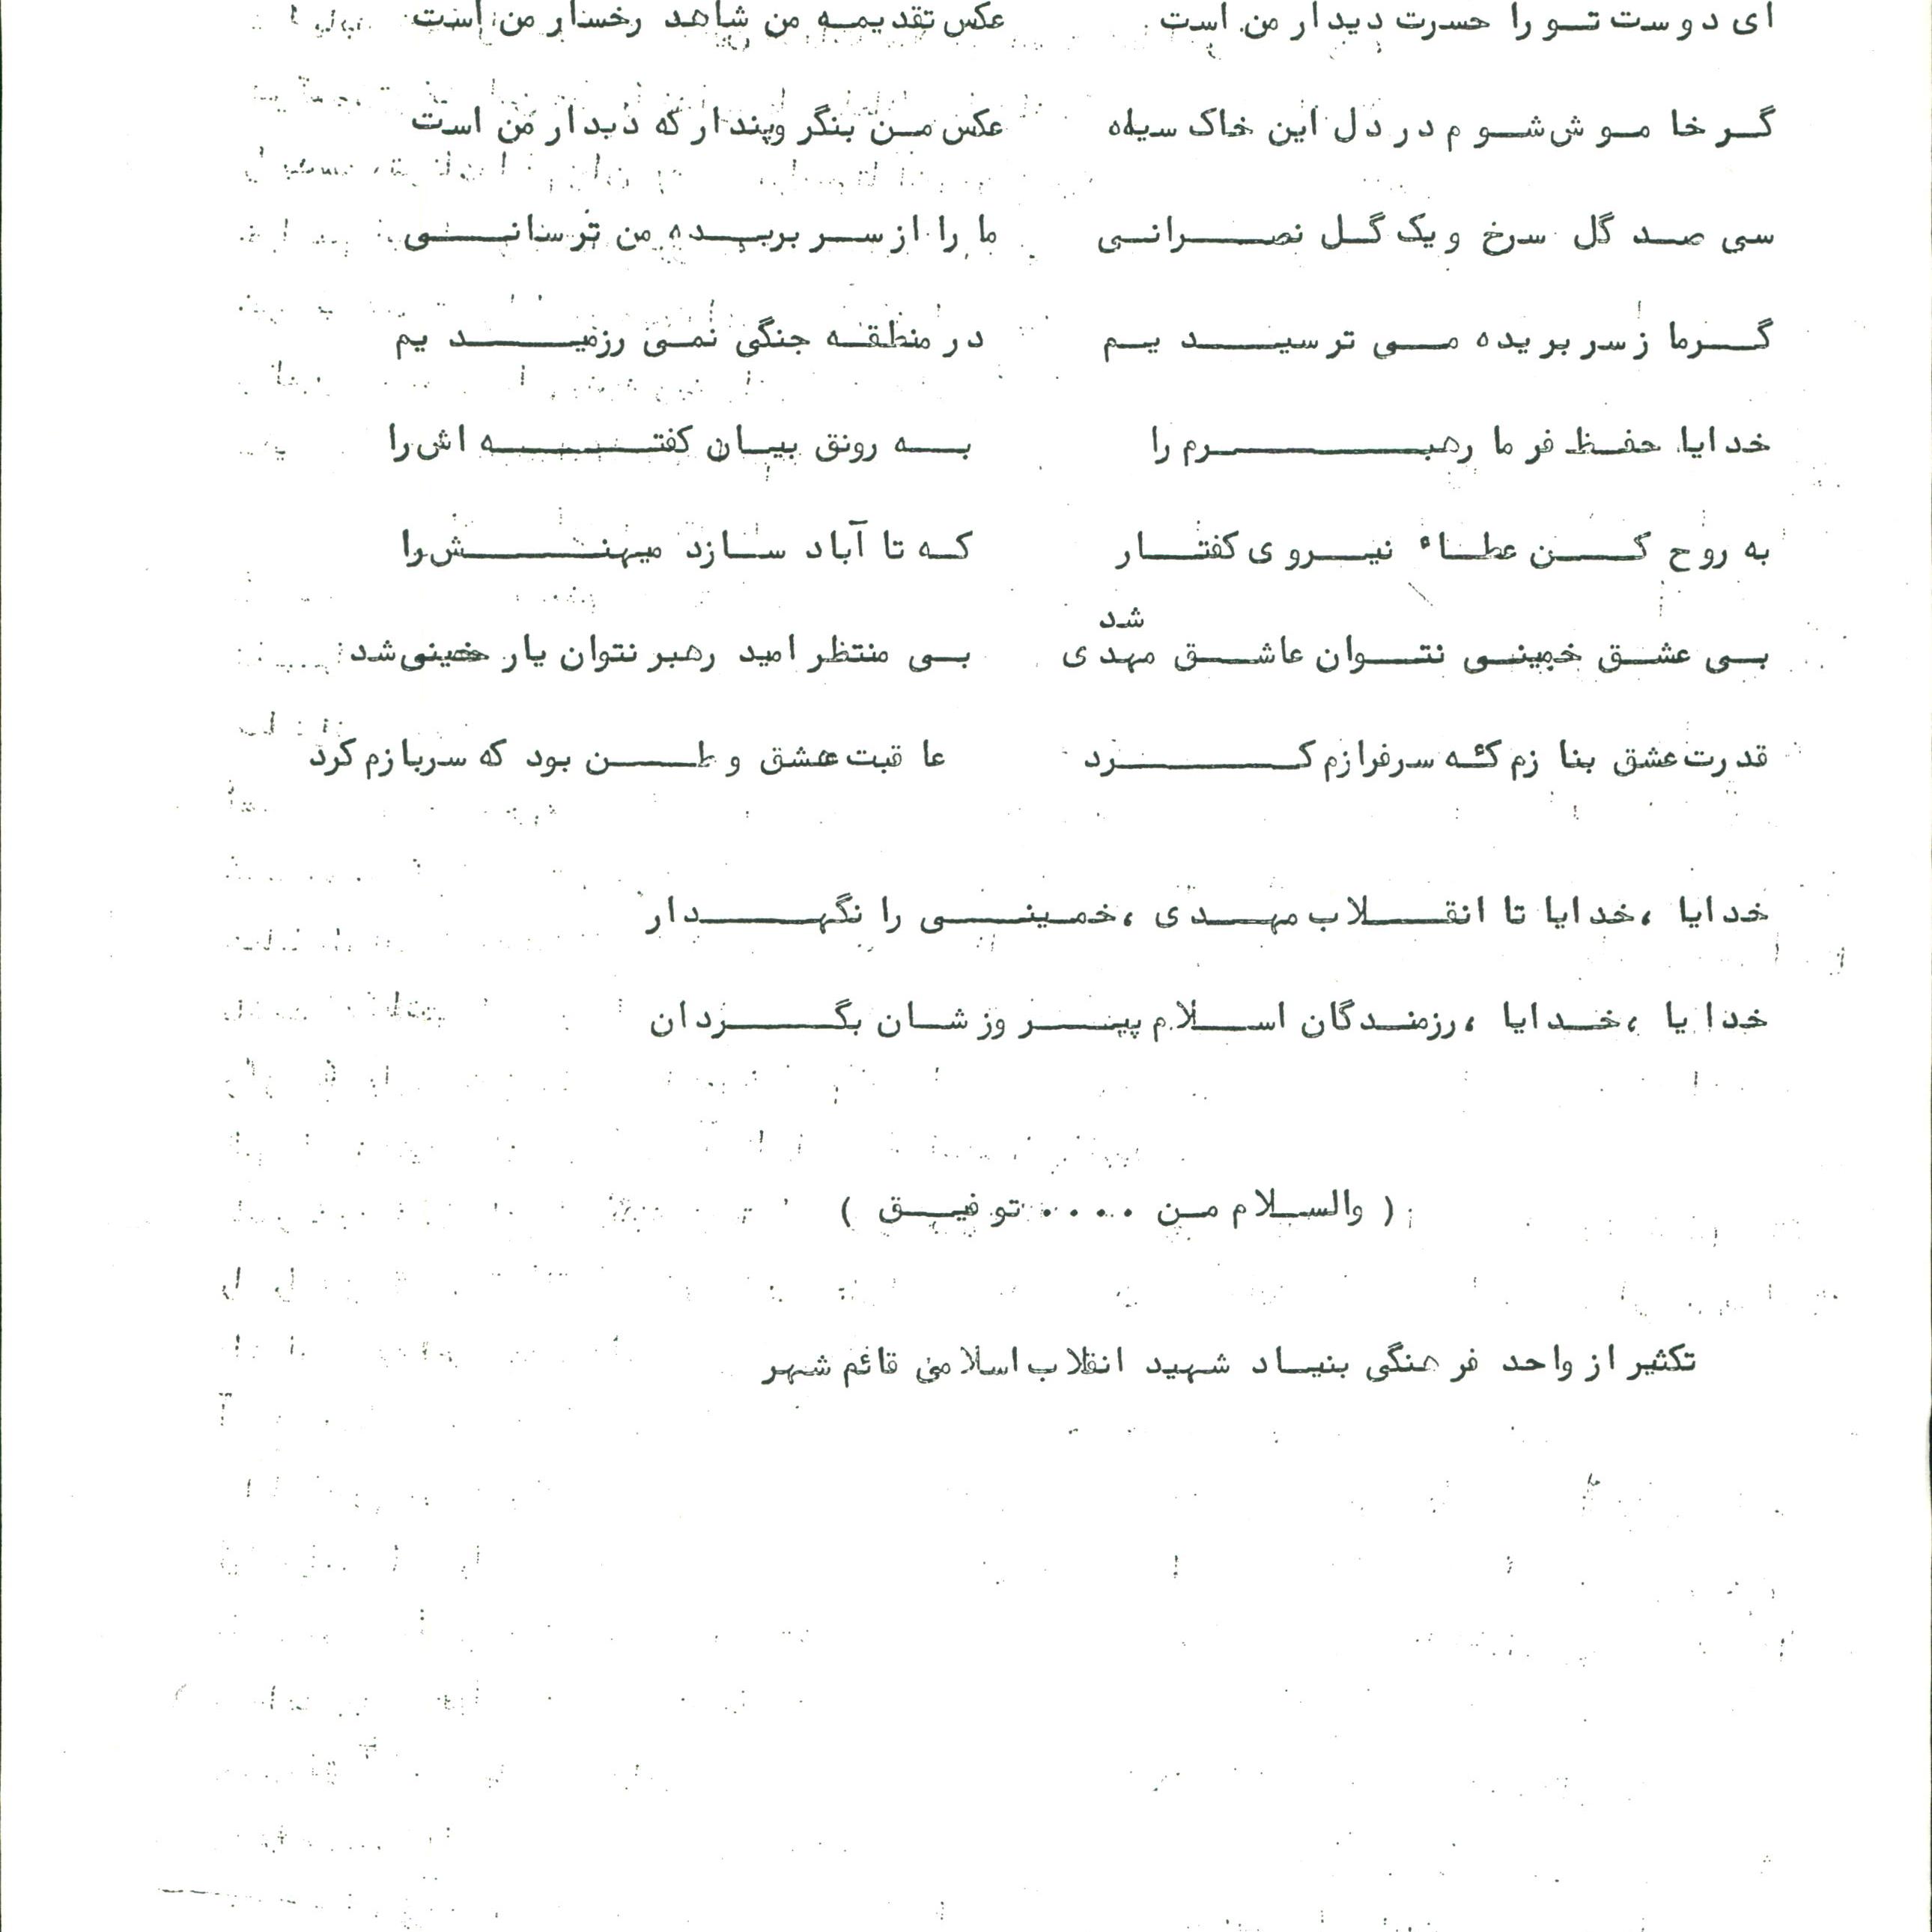 ای دوست تو را حسرت دیدار من است عکس تقدیمه من شاهد رخسار من است
گر خاموش شوم در دل این خاک سیاه عکس من بنگر وپندار که دیدار من است
سی صد گل سرخ و یک گل نصرانی ما را از سر بریده من ترسانی
گرما ز سر بریده می ترسیدیم در منطقه جنگی نمی رزمیدیم
خدایا حفظ فرما رهبرم را به رونق بیان کفته اش را
به روح کن عطاء نیروی کفتار که تا آباد سازد میهنش را
بی عشق خمینی نتوان عاشق مهدی شد بی منتظر امید رهبر نتوان یار خمینی شد
قدرت عشق بنازم که سرفرازم کرد عاقبت عشق وطن بود که سربازم کرد
خدایا ،خدایا تا انقلاب مهدی ،خمینی را نگهدار
خدایا ،خدایا ،رزمندگان اسلام پیروزشان بگردان
( والسلام من .... توفیق )
تکثیر از واحد فرهنگی بنیاد شهید انقلاب اسلامی قائم شهر